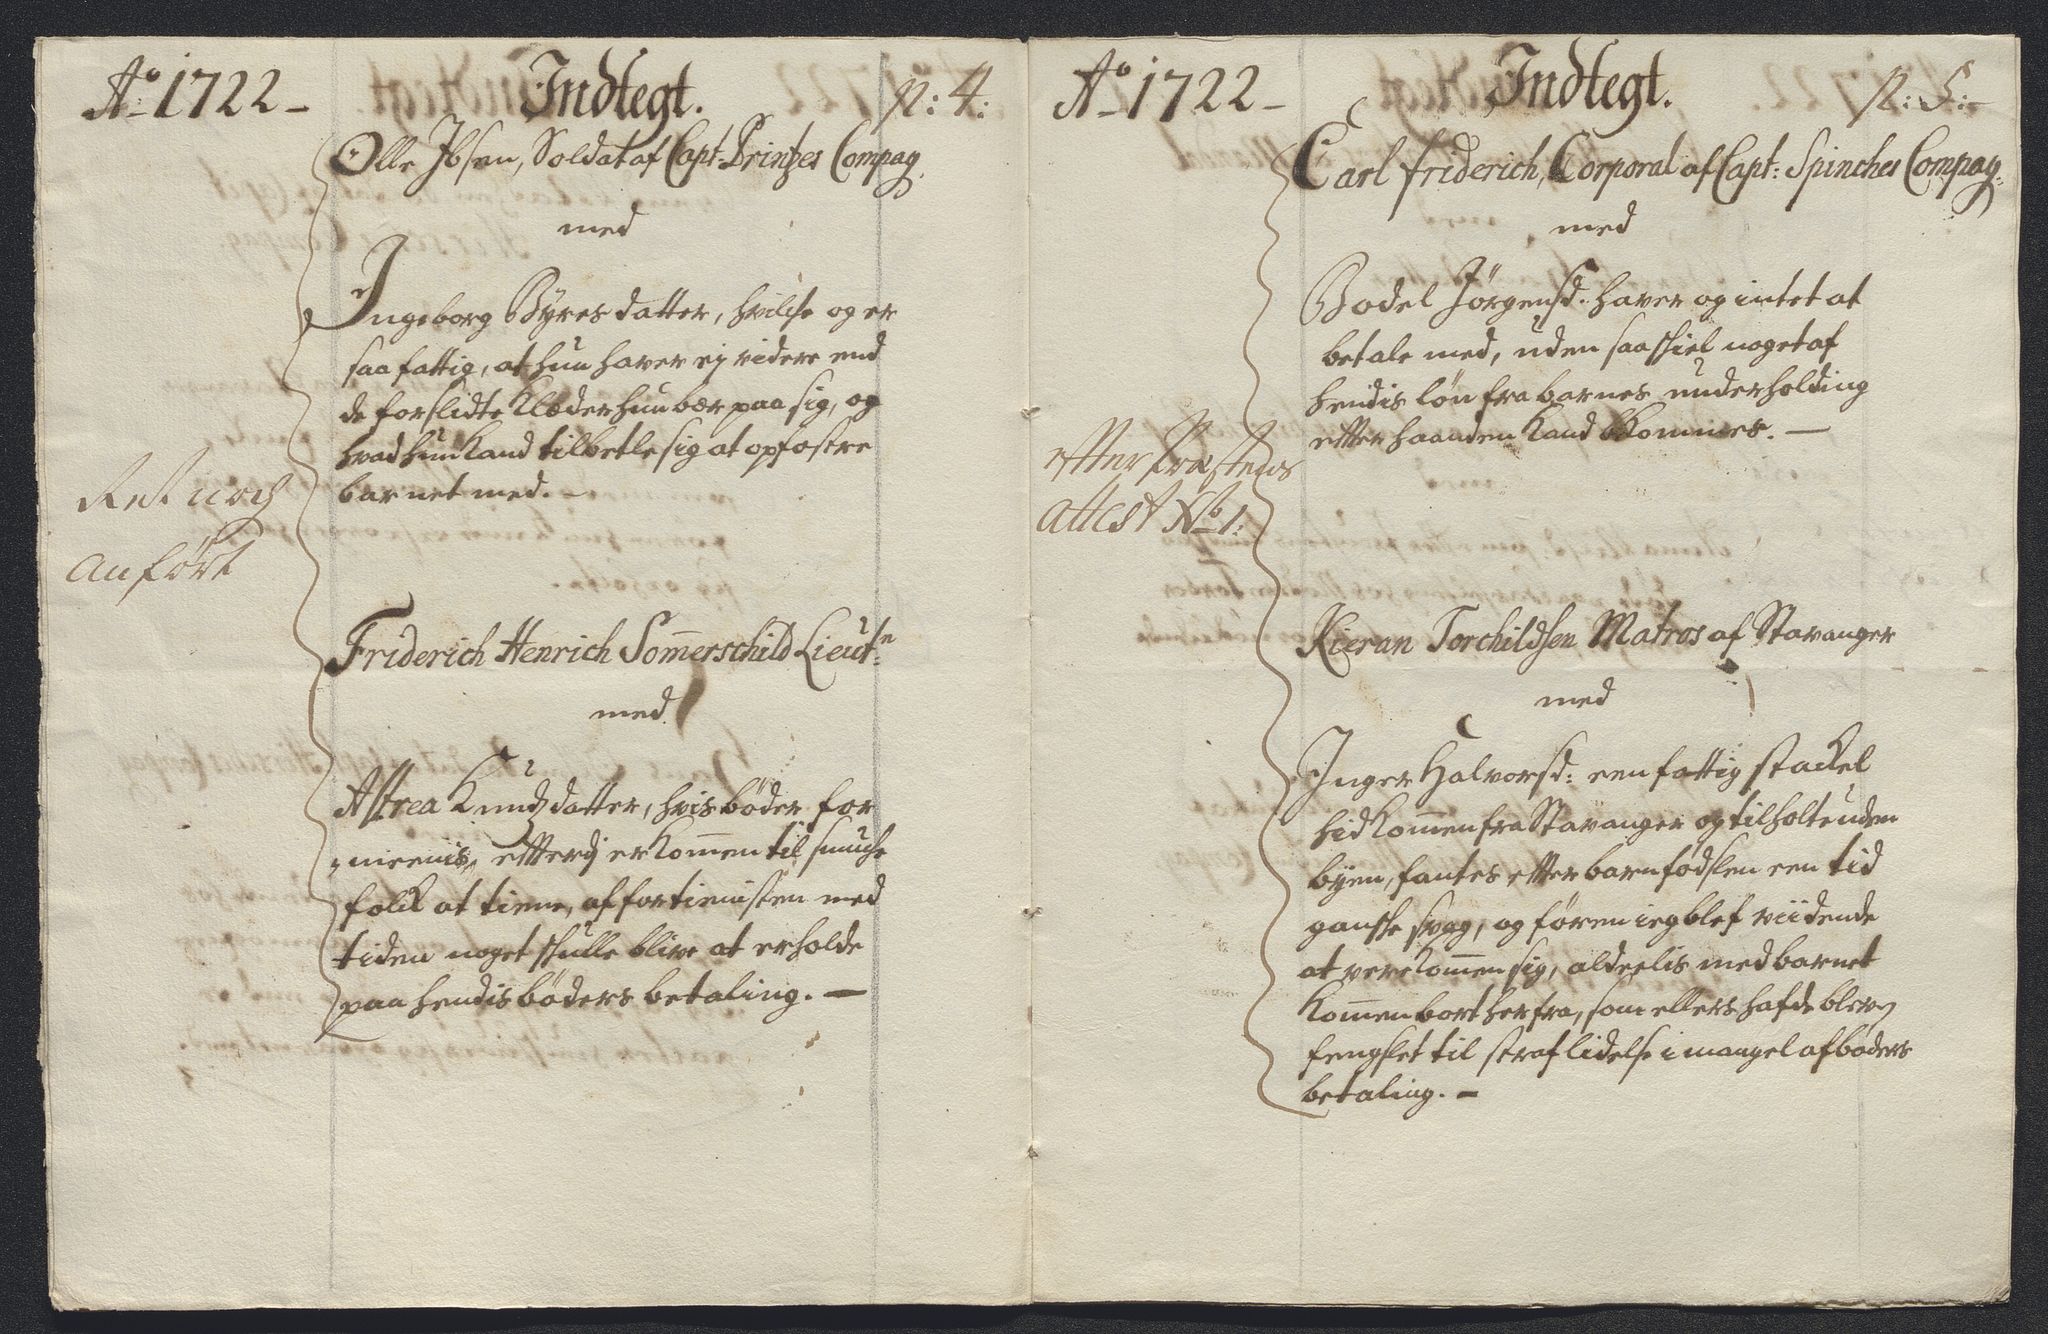 Ao 1722 –
Indtegt.
p: 4:
Olle Ibsen, Soldat af Capt: Printzes Compag.
med
Ingeborg Byres datter, hvilche og er
saa fattig, at hun haver ej videre end
de forslidte Klæder hun bær paa sig, og
hvad hun Kand tilbetle sig at opfostre
barnet med. –
Ret noch
anført
Friderich Henrich Som̄erschild Lieutn:
med
Astrea Knudsdatter, hvis bøder for
meenis, efterdj er Kom̄en til smuche
folck at tiene, af fortienisten med
tiden noget skulle blive at erholde
paa hendis bøders betaling. –
Ao 1722 –
Indtegt.
p: 5: –
Carl Friderich, Corporal af Capt: Spinches Compag:
med
Bodel Jörgensd. haver og intet at
betale med, uden saa skiel noget af
hendis løn fra barnes underholding
efter haanden Kand bekommes. –
efter Præstens
attest No 1:
Kieran Torchildsen Matros af Stavanger
med
Inger Halvorsd: een fattig stackel
hid Kom̄en fra Stavanger og tilholt uden
byen, fantes efter barnfødslen een tid
gansche svag, og før en ieg blef viidende
at vere Kom̄en sig, aldeelis med barnet
Kom̄en bort herfra, som ellers hafde blev
fengslet til straf lidelse i mangel af bøders
betaling. –